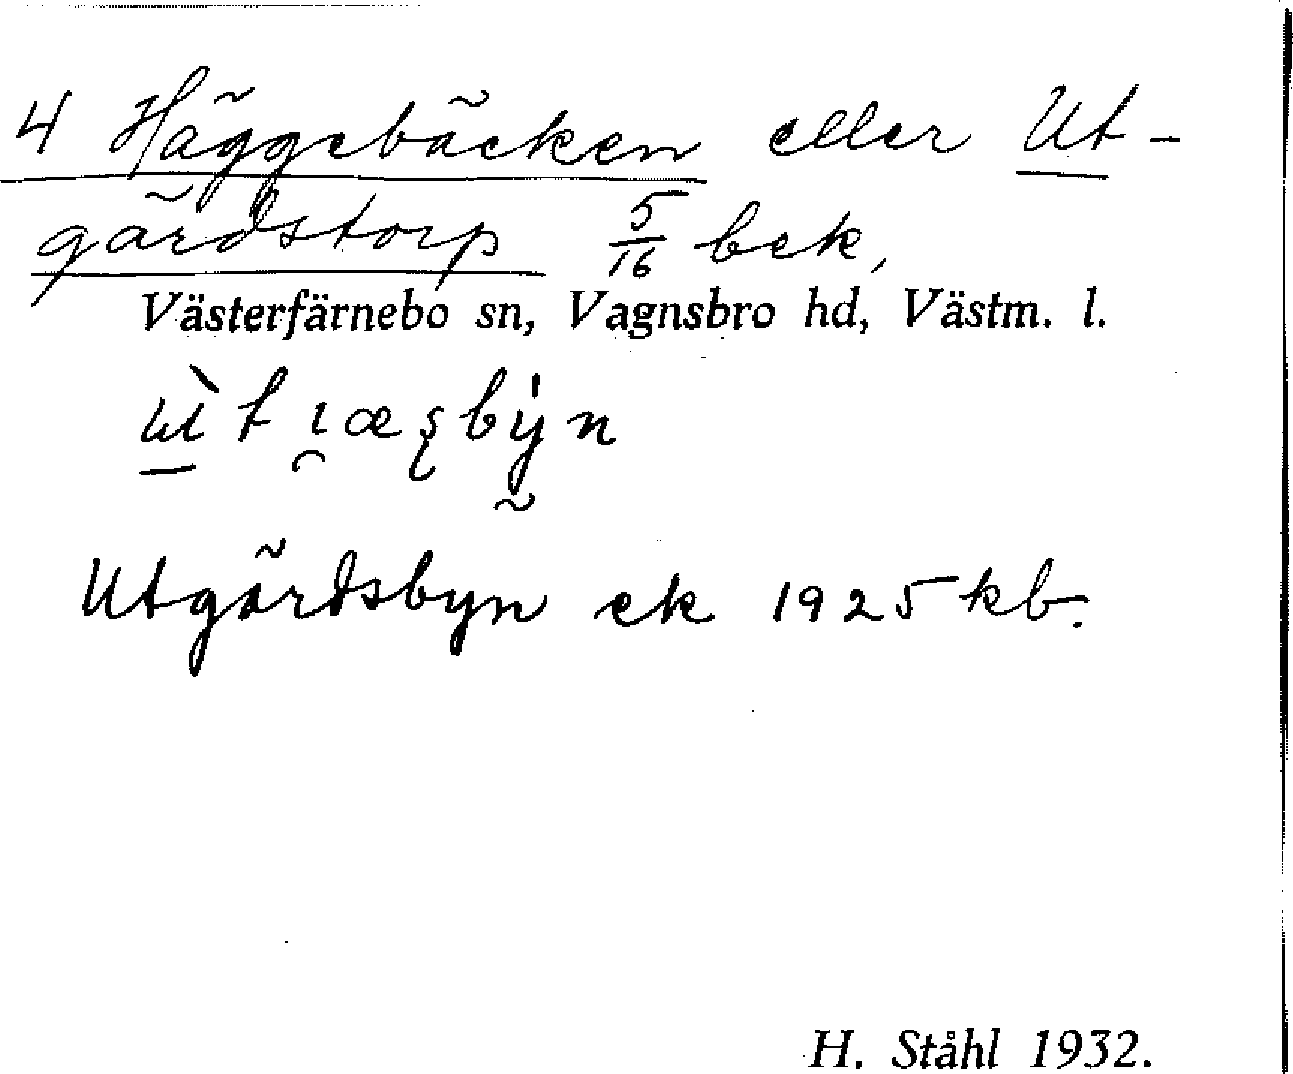 4 Häggebäcken eller Ut-
gärdstorp 5/16 bek,
Västerfärnebo sn, Vagnsbro hd, Västm. l.
Utgärdsbyn ek 1925 kb.
H. Ståhl 1932.